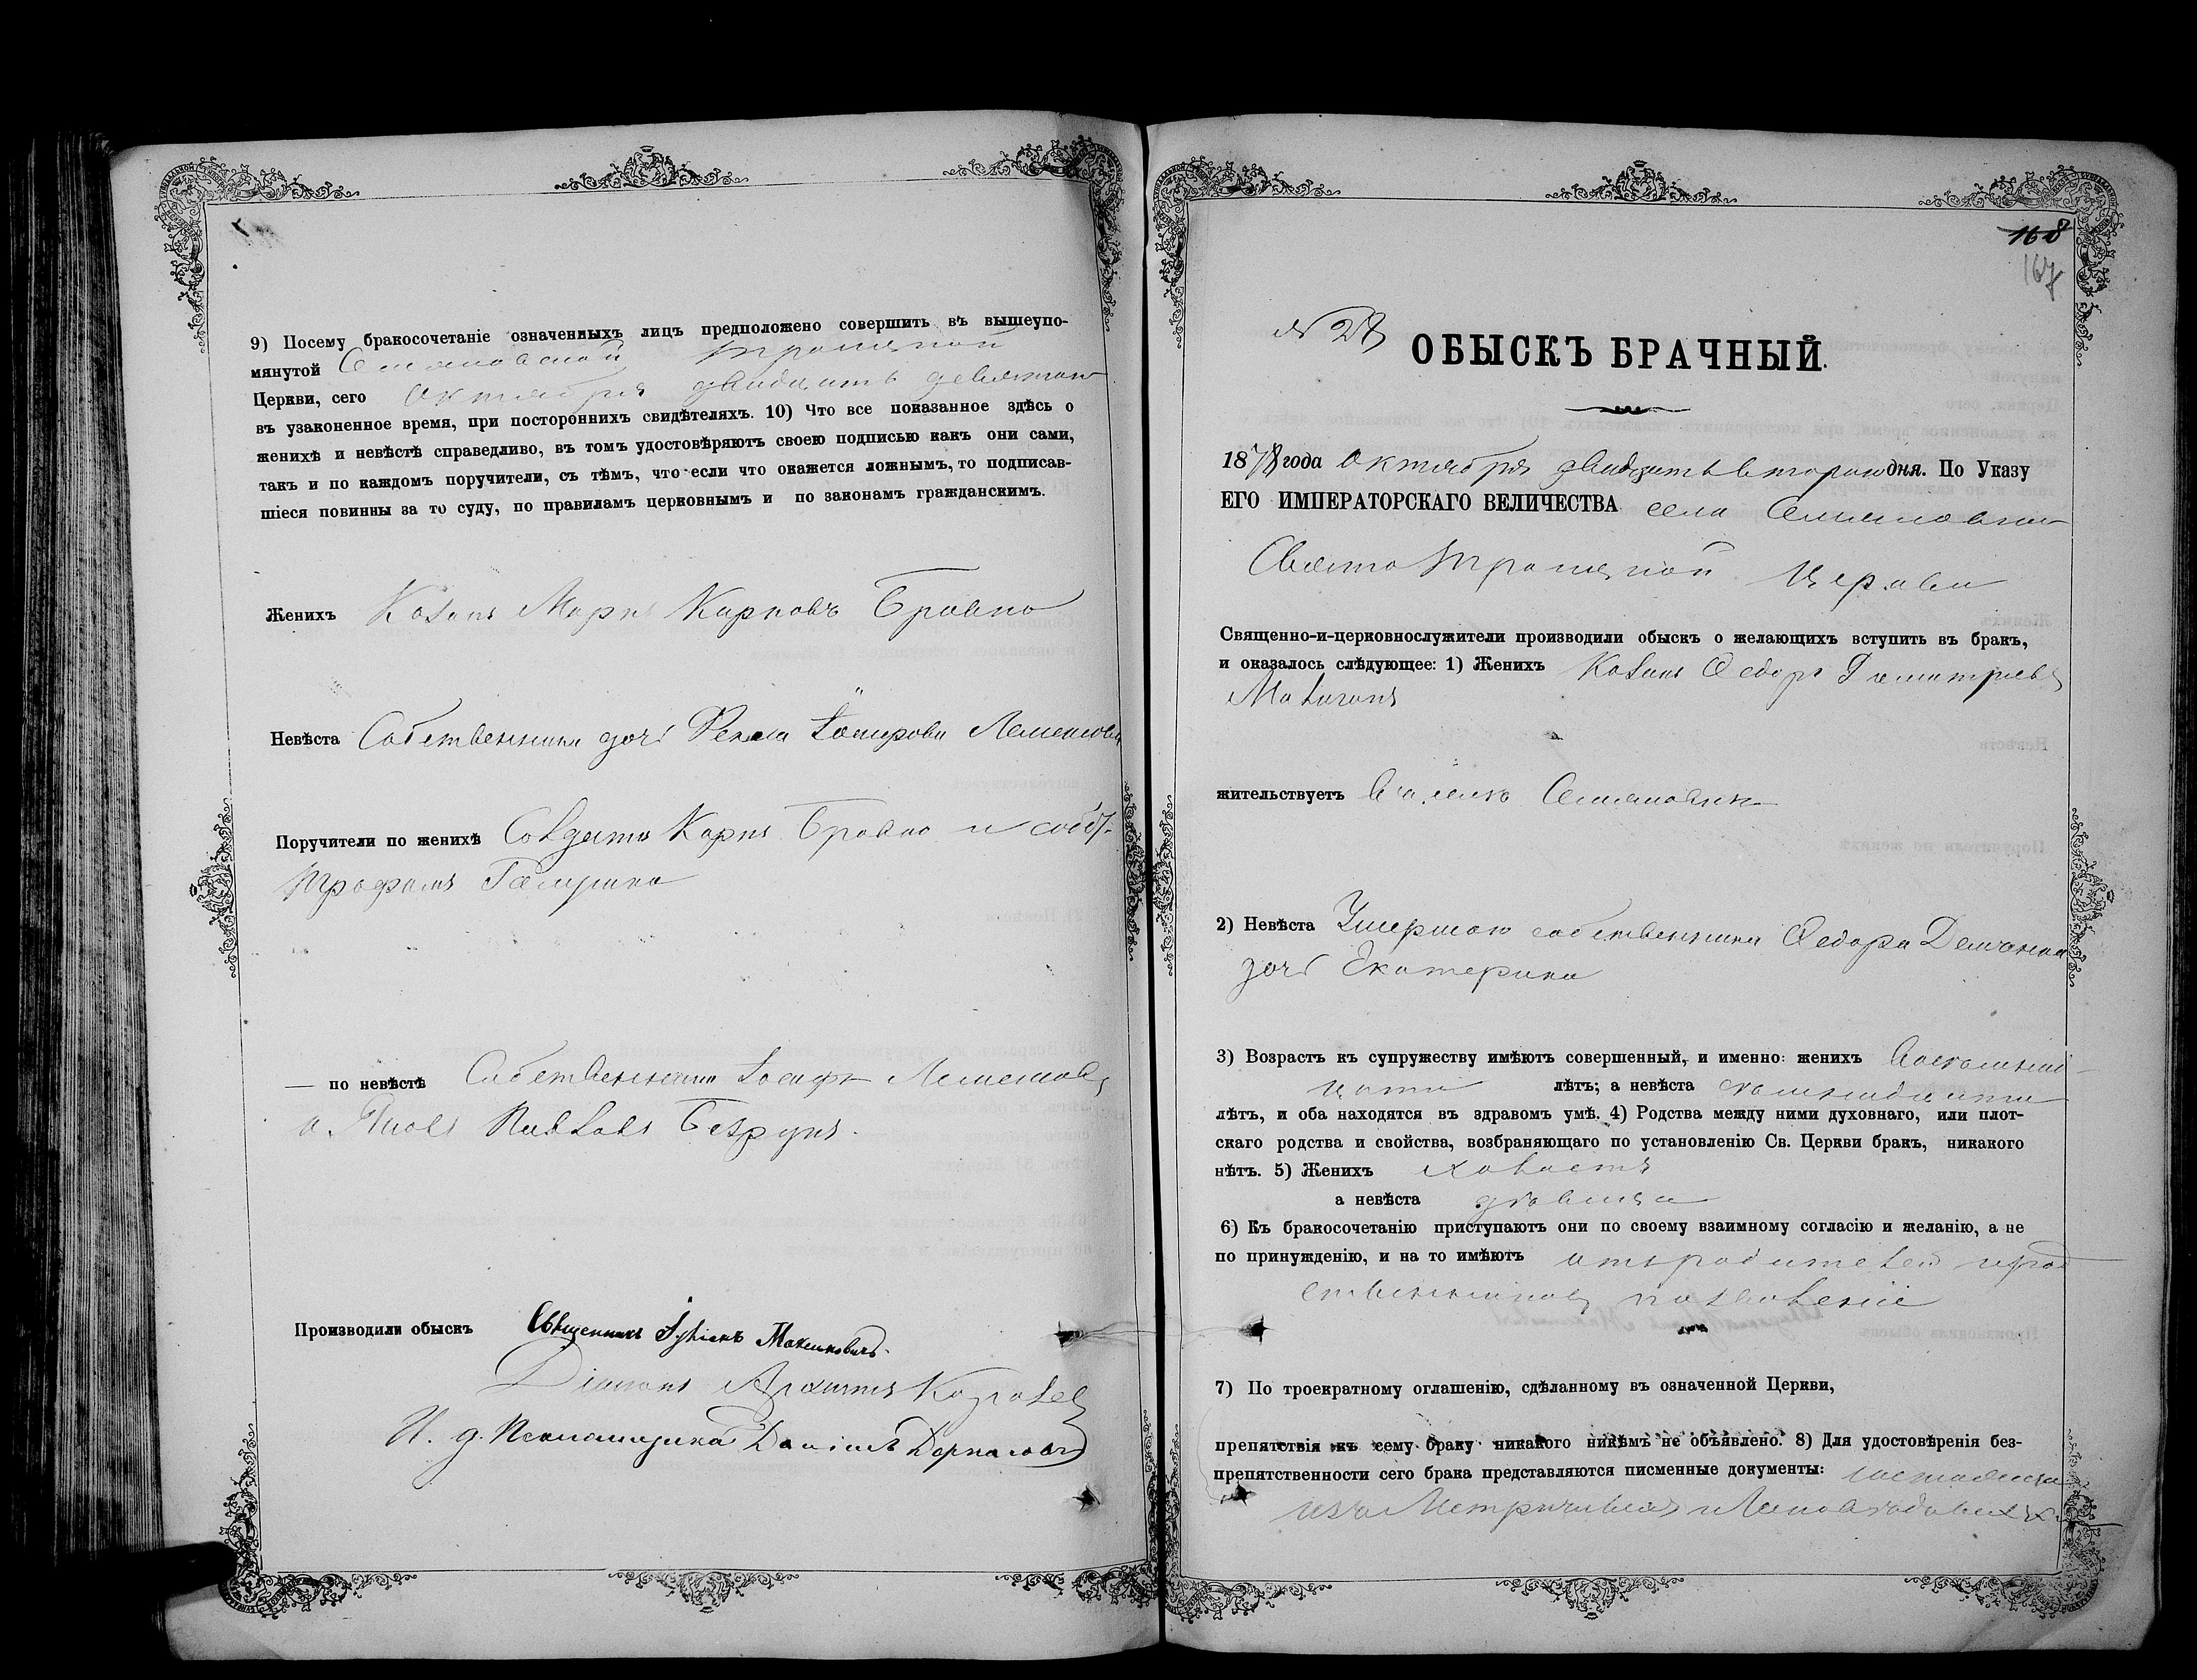 9) Посему бракосочетаніе означенныхъ лицъ предположено совершить въ вышеупо-
мянутой Семяновской Троицкой
Церкви, сего Октября двадцать девятого
въ узаконенное время, при постороннихъ свидѣтеляхъ. 10) Что все показанное здѣсь о
женихѣ и невѣстѣ справедливо, въ томъ удостовѣряютъ своею подписью какъ они сами,
такъ и по каждомъ поручители, съ тѣмъ, что если что окажется ложнымъ, то подписав-
шіеся повинны за то суду, по правиламъ церковнымъ и по законамъ гражданскимъ.
Женихъ Козакъ Марко Карповъ Бровко
Невѣста Собственника дочь Іосифова
Поручители по женихѣ Солдатъ Карпъ Бровко и собст:
Трофимъ Галушка
— по невѣстѣ Собственники Іосифъ
и
Производили обыскъ Священникъ Максимовичъ
Діаконъ
И. д. Псаломщика Даніилъ
168
167
№ 28
ОБЫСКЪ БРАЧНЫЙ.
1878 года Октября двадцать второго дня. По Указу
ЕГО ИМПЕРАТОРСКАГО ВЕЛИЧЕСТВА села Семяновки
Свято Троицкой Церкви
Священно-и-церковнослужители производили обыскъ о желающихъ вступить въ бракъ,
и оказалось слѣдующее: 1) Женихъ Козакъ Федоръ Димитріевъ
Макогонъ
жительствуетъ въ селѣ Семяновкѣ
2) Невѣста Умершого собственника Федора Демченка
дочь Екатерина
3) Возрастъ къ супружеству имѣютъ совершенный, и именно: женихъ восемнад-
цати лѣтъ; а невѣста
лѣтъ, и оба находятся въ здравомъ умѣ. 4) Родства между ними духовнаго, или плот-
скаго родства и свойства, возбраняющаго по установленію Св. Церкви бракъ, никакого
нѣтъ. 5) Женихъ холостъ
а невѣста дѣвица
6) Къ бракосочетанію приступаютъ они по своему взаимному согласію и желанію, а не
по принужденію, и на то имѣютъ отъ родителей и род
ственниковъ позволеніе
7) По троекратному оглашенію, сдѣланному въ означенной Церкви,
препятствія къ сему браку никакого никѣмъ не объявлено. 8) Для удостовѣренія без-
препятственности сего брака представляются писменные документы:
изъ Метрическихъ и Исповѣдныхъ